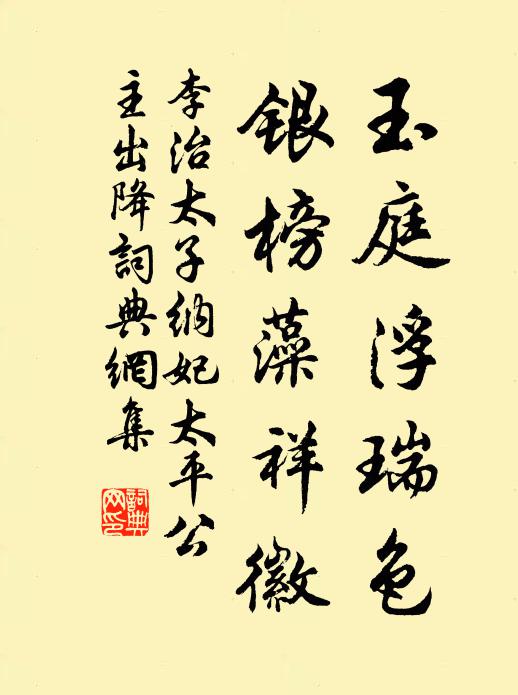 玉庭浮瑞色
銀榜藻祥徽
李治太子納妃太平公
主出降詞典網集
詞典網印